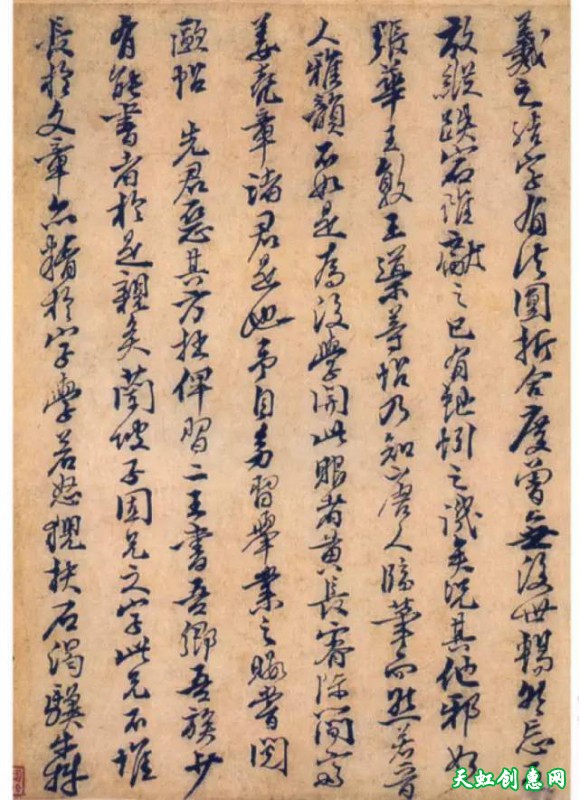 羲之結字有法圓折合度曾無後世
放縱跌宕雖獻之已有之譏矣況其他邪如
張華王敦王導等帖乃知唐人臨筆而然若晉
人雅韻不如是為後學開此眼者黃長睿陳簡齋
姜堯章諸君是也予自幼習舉業之暇嘗閱
歐帖 先君惡其方拄俾習二王書吾鄉吾族少
有能書者於是親炙蘭坡子固兄之字此兄不惟
長於文章亦精於字學若怒猊抉石渴驥奔
天虹创惠网